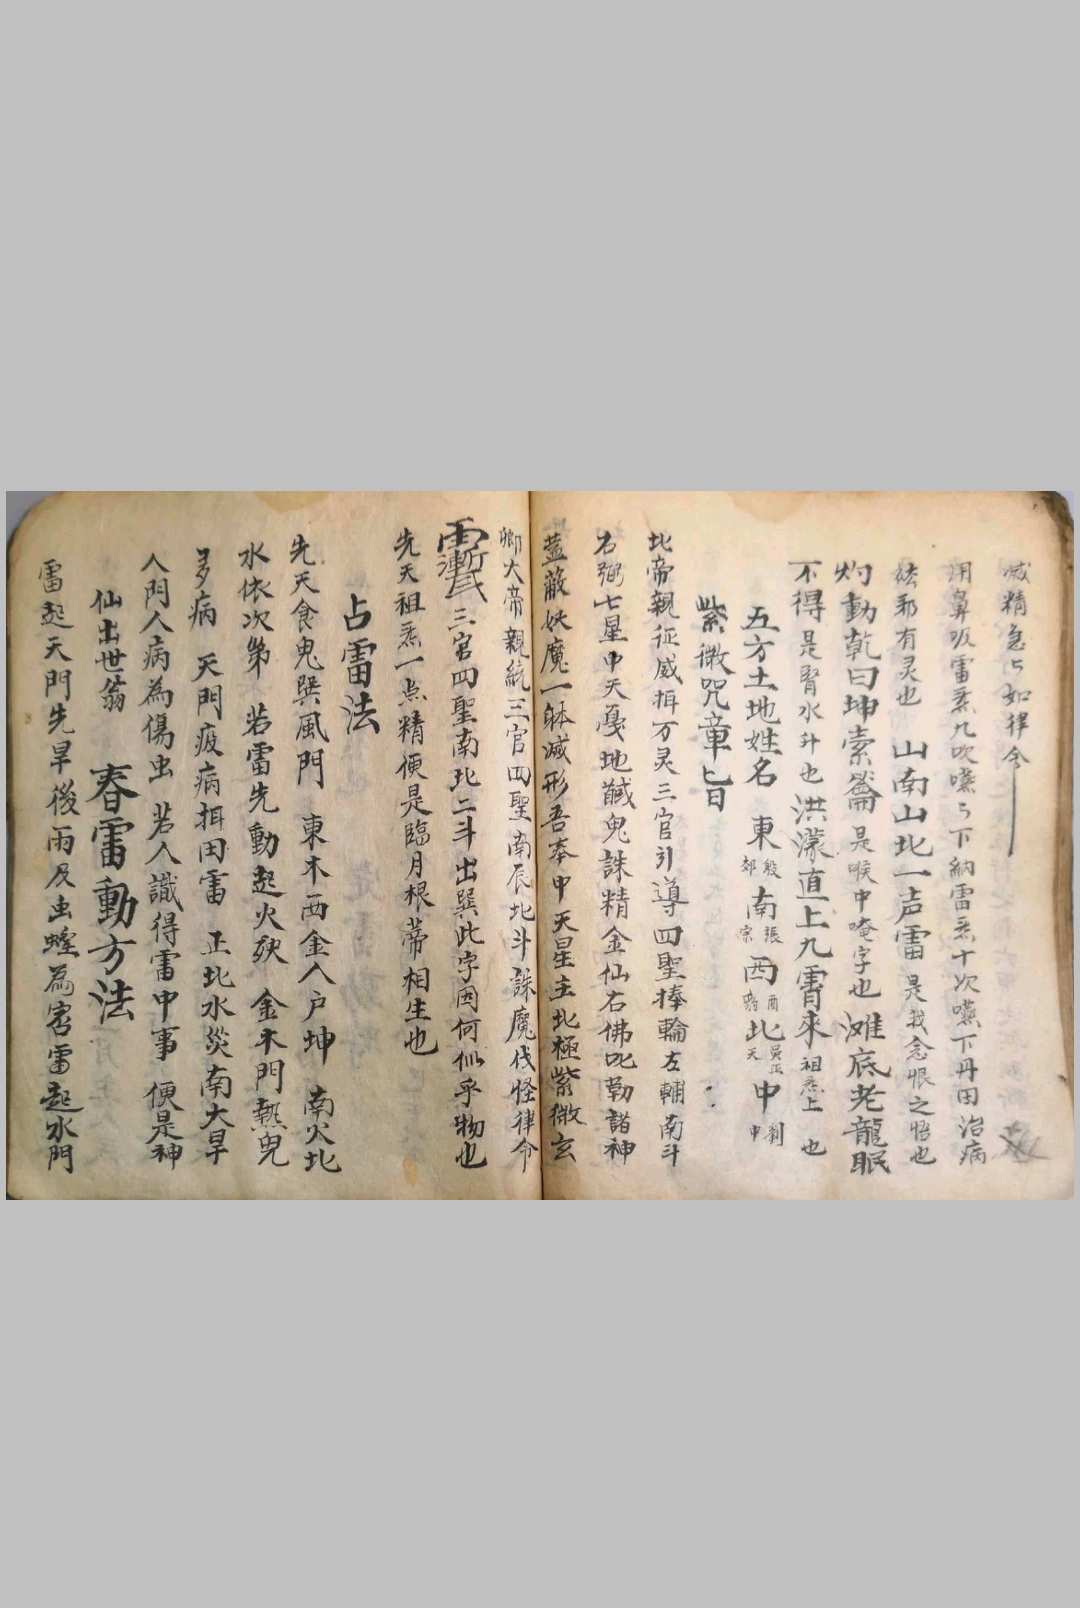 减精急々如律令
用鼻吸雷炁九吹嚥々下納雷炁十次嚥下丹田治病
袪邪有灵也　山南山北一声雷　是我念恨之悟也
灼動乾曰坤索崙　是喉中唵字也　滩底老龍眠
不得　是腎水斗也　洪濛直上九霄來　祖炁上也
五方土地姓名　東　殷郊　南　張宗　西　酉　北　吳正天　中　剹中
紫微咒章旨
北帝親征威揖万灵三官引導四聖捧輪左輔南斗
右弼七星中天戛地馘鬼誅精金仙右佛叱勒諸神
蓋蔽妖魔一躰减形吾奉中天星主北極紫微玄
卿大帝親統三官四聖南辰北斗誅魔伐怪律令
三官四聖南北二斗出巽此字因何似乎物也
先天祖炁一点精便是臨月根蒂相生也
占雷法
先天食鬼巽風門　東木西金入户坤　南火北
水依次第　若雷先動起火殃　金木門熱兒
多病　天門疫病揖田雷　正北水災南大旱
人門人病為傷虫　若人識得雷中事　便是神
仙出世翁　春雷動方法
雷起天門先旱後雨及虫蝗為害雷起水門